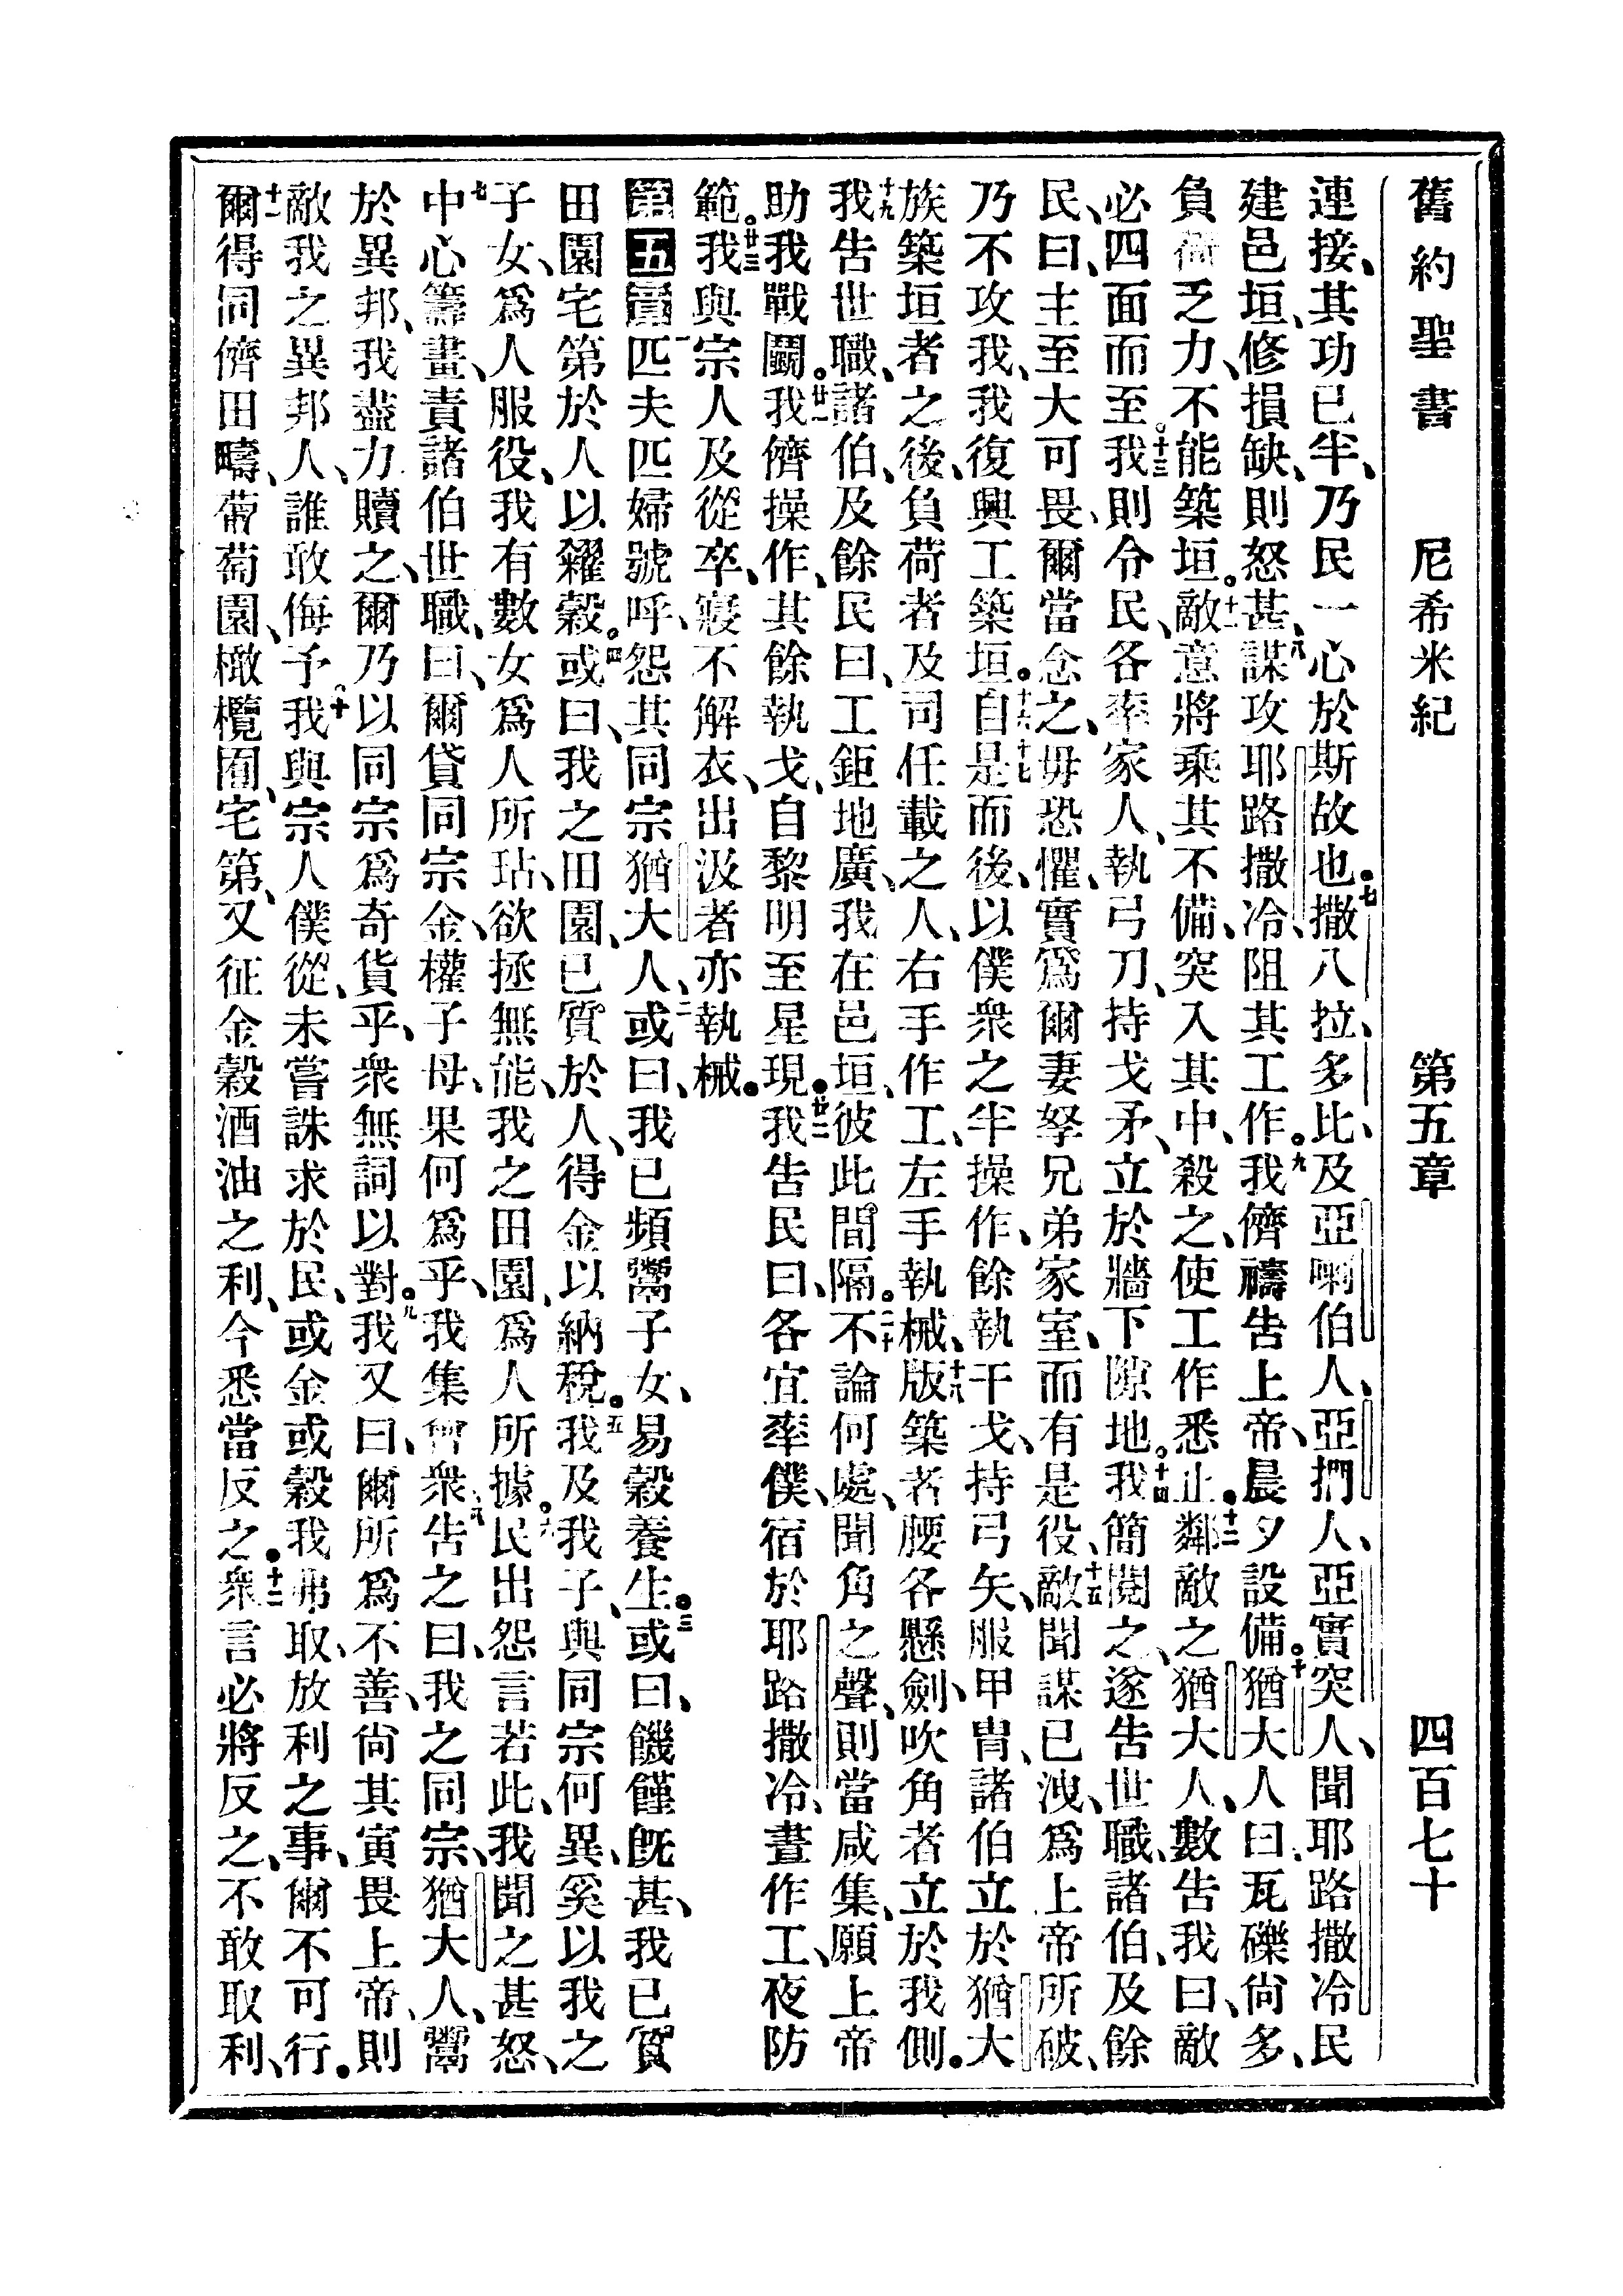 舊約聖書 尼希米紀 第五章 四百七十
連接、其功已半、乃民一心於斯故也。七撒八拉、多比、及亞喇伯人、亞捫人、亞實突人、聞耶路撒冷民
建邑垣、修損缺、則怒甚、八謀攻耶路撒冷、阻其工作。九我儕禱告上帝、晨夕設備。十猶大人曰、瓦礫尙多、
負荷乏力、不能築垣。十一敵意將乘其不備、突入其中、殺之、使工作悉止。十二鄰敵之猶大人、數告我曰、敵
必四面而至。十三我則令民、各率家人、執弓刀、持戈矛、立於牆下隙地。十四我簡閱之、遂告世職、諸伯、及餘
民、曰、主至大可畏、爾當念之、毋恐懼、實爲爾妻孥兄弟家室、而有是役、十五敵聞謀已洩、爲上帝所破、
乃不攻我、我復興工築垣。十六十七自是而後、以僕衆之半操作、餘執干戈、持弓矢、服甲冑、諸伯立於猶大
族築垣者之後、負荷者及司任載之人、右手作工、左手執械、十八版築者腰各懸劍、吹角者立於我側。
十九我告世職、諸伯、及餘民曰、工鉅地廣、我在邑垣、彼此間隔。二十不論何處、聞角之聲、則當咸集、願上帝
助我戰鬭。廿一我儕操作、其餘執戈、自黎明至星現。廿二我告民曰、各宜率僕、宿於耶路撒冷、晝作工、夜防
範。廿三我與宗人及從卒、寢不解衣、出汲者亦執械。
第五章一匹夫匹婦號呼、怨其同宗猶大人、二或曰、我已頻鬻子女、易穀養生。三或曰、饑饉旣甚、我已質
田園宅第於人以糴穀。四或曰、我之田園、已質於人、得金以納稅。五我及我子、與同宗何異、奚以我之
子女、爲人服役、我有數女爲人所玷、欲拯無能、我之田園、爲人所據。六民出怨言若此、我聞之甚怒、
七中心籌畫、責諸伯世職、曰、爾貸同宗金、權子母、果何爲乎、我集會衆、八告之曰、我之同宗、猶大人、鬻
於異邦、我盡力贖之、爾乃以同宗爲奇貨乎、衆無詞以對。九我又曰、爾所爲不善、尙其寅畏上帝、則
敵我之異邦人、誰敢侮予。十我與宗人僕從、未嘗誅求於民、或金或穀、我弗取、放利之事、爾不可行。
十一爾得同儕田疇、葡萄園、橄欖囿、宅第、又征金穀酒油之利、今悉當反之。十二衆言必將反之、不敢取利、